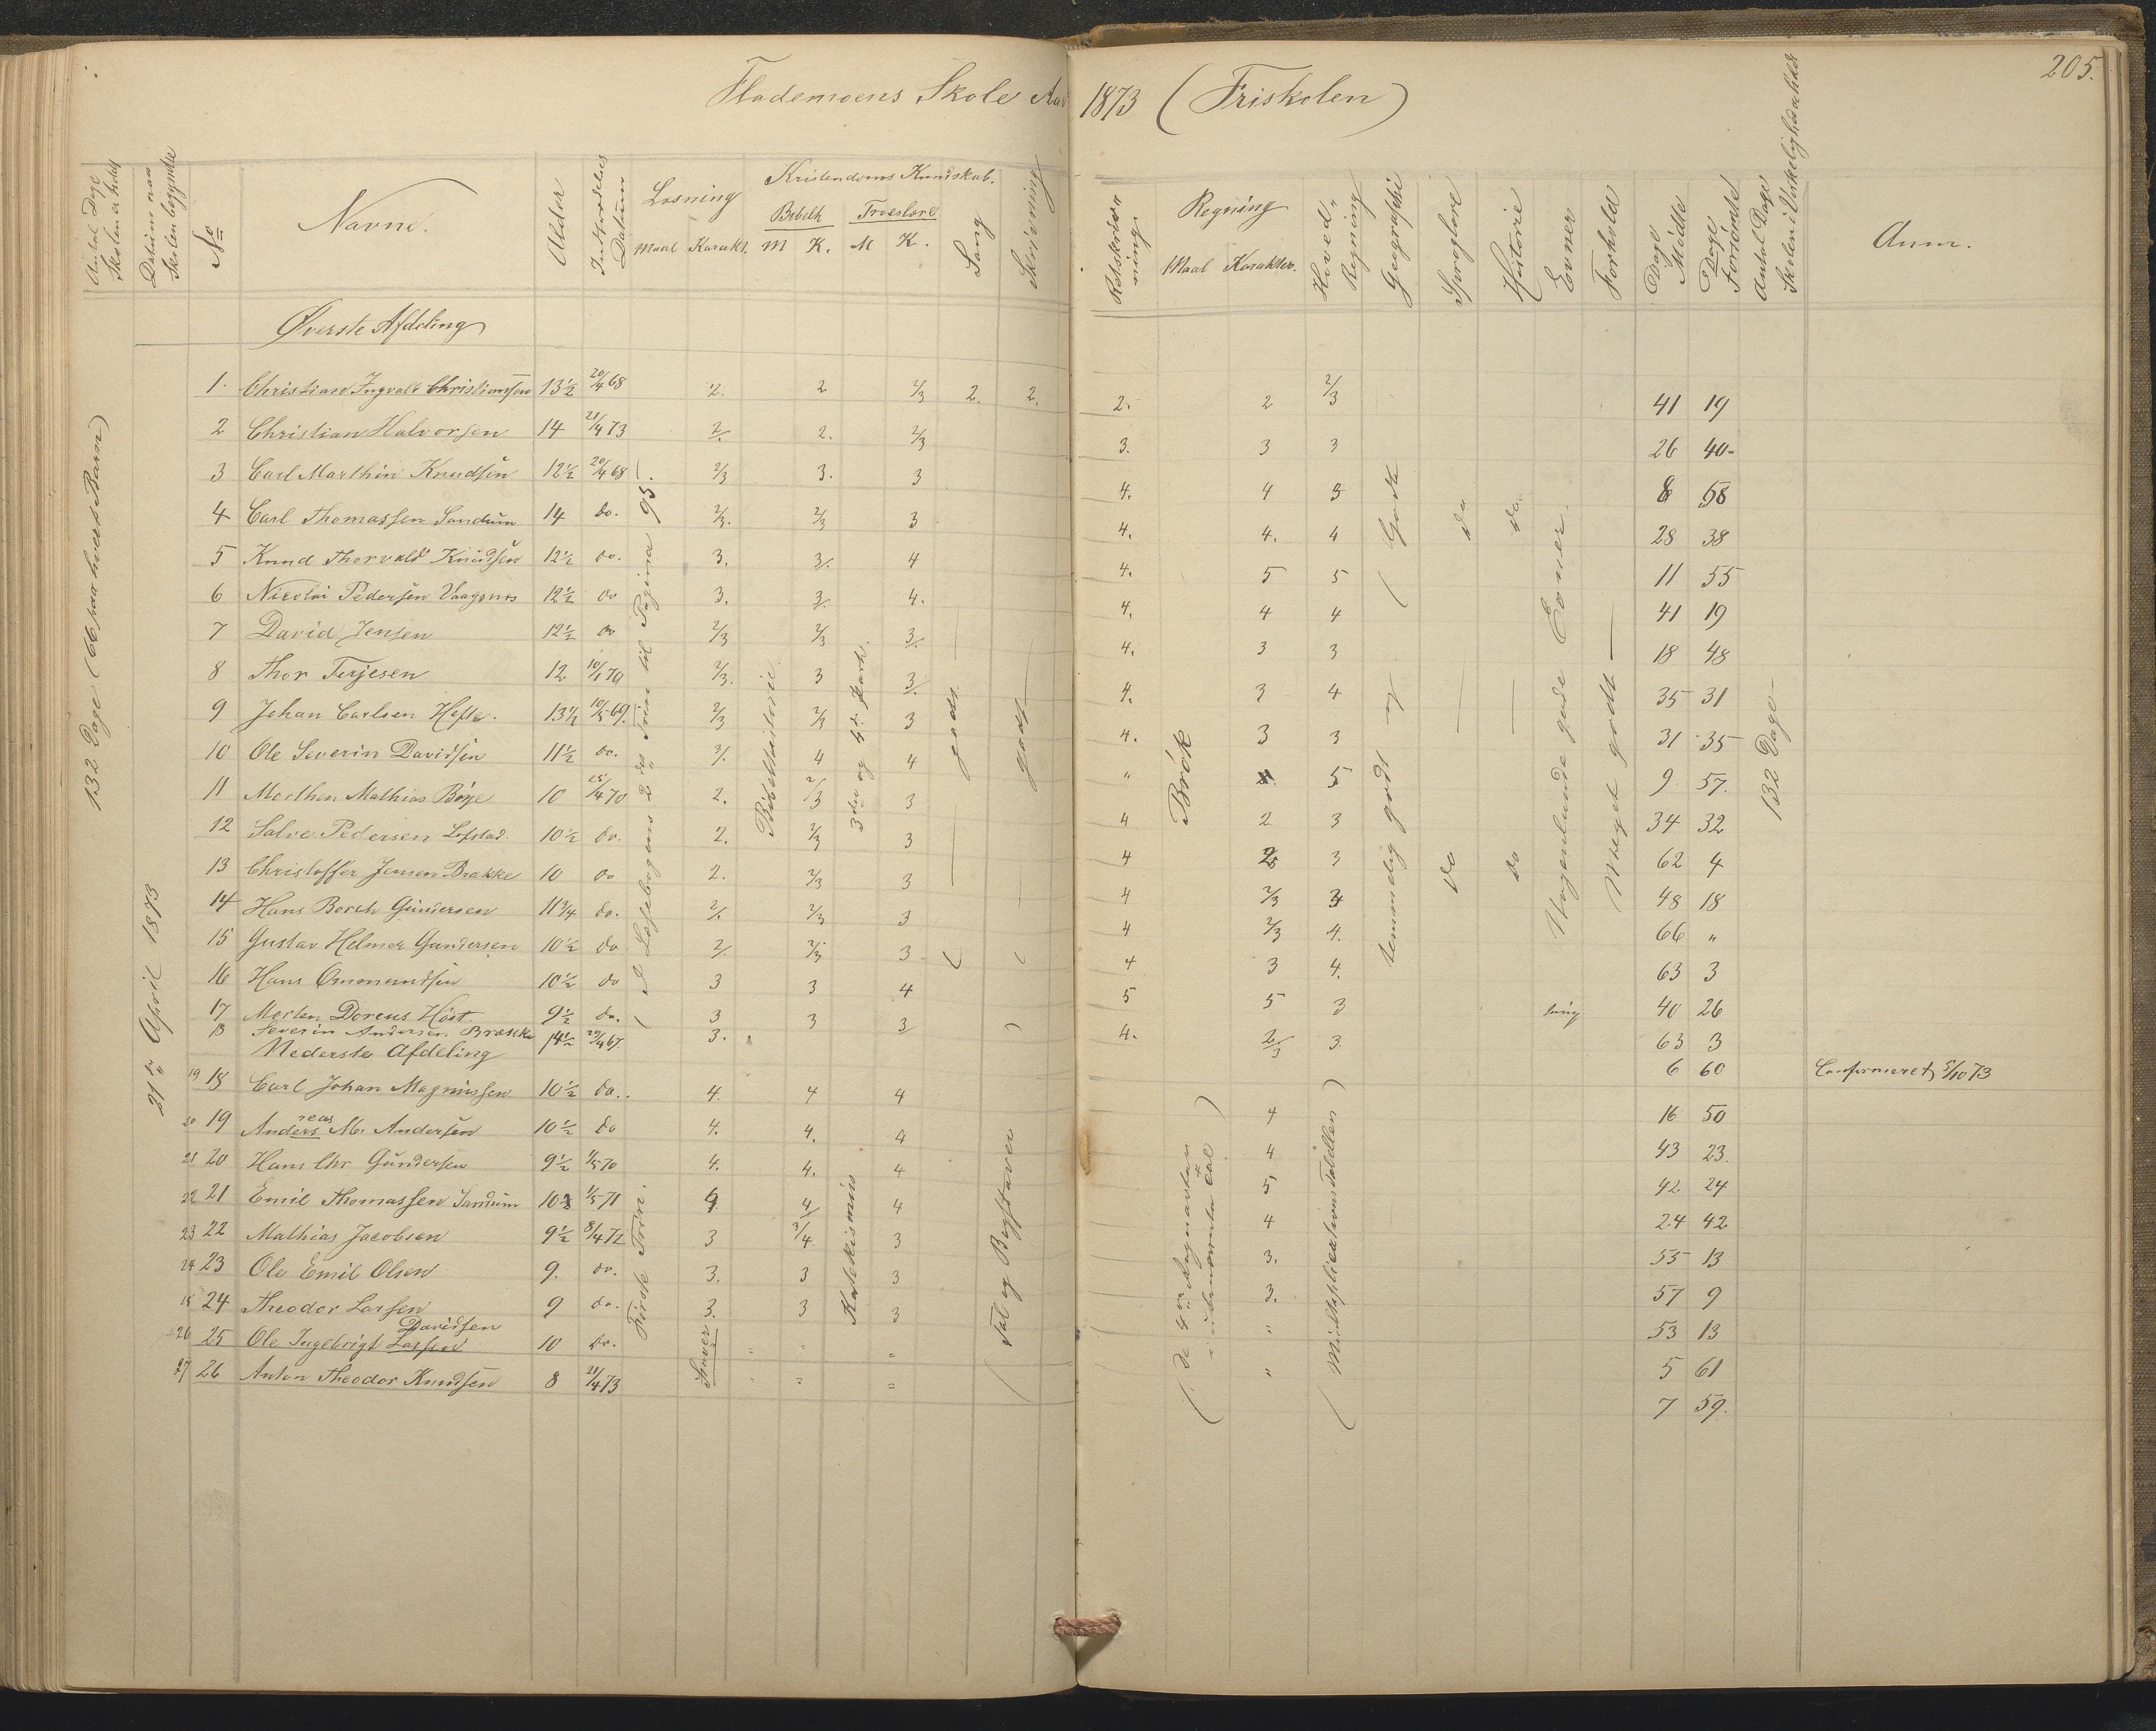 Flademoens Skole Aar 1873 (Friskolen)
205.
Antal Dage Skolen er holdt
Datum naar Skolen begyndte
No
Navne.
Alder
Indtrædelses Datum
Læsning
Maal Karakt.
Kristendoms Kundskab.
Bibelh
M K.
Troeslære
M K.
Sang
Skrivning
Retskrivning
Regning
Maal Karakter.
Hoved-Regning
Geografhi
Sproglære
Historie
Evner
Forhold
Dage Mødte
Dage Forsömte
Antal Dage Skolen i Virkelighed holdt
Anm.
132 Dage (66 paa hvert Barn)
21de April 1873
Øverste Afdeling
1. Christian Ingvald Christiansen 13½ 20/4 68 2. 2 2/3 2. 2. 2. 2 2/3 41 19
2 Christian Halvorsen 14 21/4 73 2/. 2. 2/3 3. 3 3 26 40
3 Carl Marthin Knudsen 12½ 20/4 68 2/3 3. 3 4. 4 5 8 58
4 Carl Thomassen Sandum 14 do. 2/3. 2/3 3 4. 4. 4 28 38
5 Knud Thorvald Knudsen 12½ do. 3. 3/. 4 4. 5 5 11 55
6 Nicolai Pedersen Vaagsnes 12½ do 3. 3/. 4. 4. 4 4 41 19
7 David Jensen 12½ do 2/3 2/3 3/. 4. 3 3 18 48
8 Thor Terjesen 12 10/1 70 2/3. 3 3/. 4. 3 4 35 31
9 Johan Carlsen Hefte. 13½ 10/5 69. 2/3 2/3 3 4. 3 3 31 35
10 Ole Severin Davidsen 11½ do. 3/. 4 4 " 4. 5 9 57.
11 Morthen Mathias Böye 10 25/4 70 2. 2/3 3 4 2 3 34 32
12 Salve Pedersen Lofstad. 10½ do. 2. 2/3 3 4 2 3 62 4
13 Christoffer Jensen Brakke 10 do 2. 2/3 3 4 2/3 3 48 18
14 Hans Borch Gundersen 11¾ do. 2/. 2/3 3 4 2/3 4. 66 "
15 Gustav Helmer Gundersen 10½ do 2/. 2/3 3 4 3 4. 63 3
16 Hans Ommundsen 10½ do 3 3 4 5 5 3 40 26
17 Morten Doreus Höst. 9½ do. 3 3 3/ 4. 2/3 3. 63 3
18 Severin Andersen Bræcke 14½ 20/4 67. 3. 6 60 Confirmeret 5/10 73
Nederste Afdeling
19 18 Carl Johan Magnussen 10½ do.. 4. 4 4 4 16 50
20 19 Andersreas M. Andersen 10½ do 4. 4. 4 4 43 23.
21 20 Hans Chr Gundersen 9½ 1/5 70 4. 4. 4 5 42 24
22 21 Emil Thomassen Sandum 10½ 1/5 71 4 4/ 4 4 24 42
23 22 Mathias Jacobsen 9½ 8/4 72 3 3/4 3 3. 53 13
24 23 Ole Emil Olsen 9. do. 3. 3 3 3. 57 9
25 24 Theodor Larsen 9 do. 3. 3 3 " 53 13
26 25 Ole Ingebrigt Larsen Davidsen 10 do. " " " " 5 61
27 26 Anton Theodor Knudsen 8 21/4 73 " " " 7 59.
I Læsebogens 2det Trin til Pagina 95.
Bibelhistorie
3die og 4de Part.
godt
godt
Brök
temmelig godt og Godt
do
do
do
do
Nogenlunde gode Evner.
Meget godt
132 Dage
Første Trin.
Staver
Katekismus
Tal og Bogstaver
(de 4 Regnearter i ubenævnte Tal)
(Multiplicationstabellen)